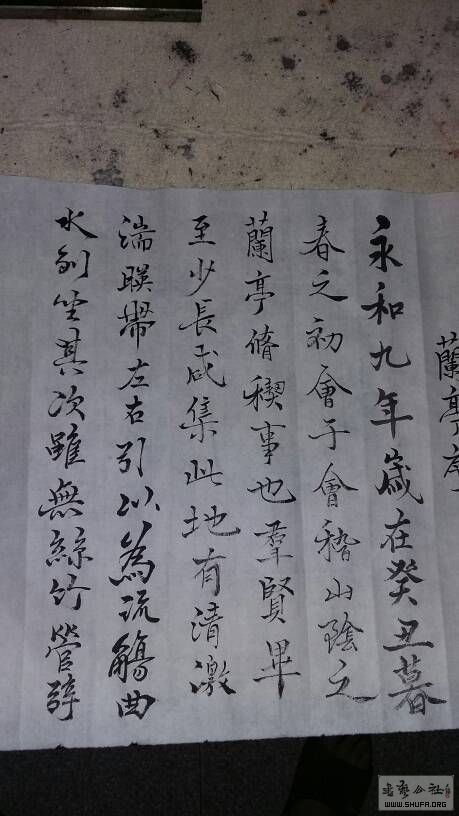 蘭亭序
永和九年歲在癸丑暮
春之初會于會稽山陰之
蘭亭脩稧事也羣賢畢
至少長咸集此地有清激
湍暎帶左右引以為流觴曲
水列坐其次雖無絲竹管弦
書藝公社
WWW.SHUFA.ORG